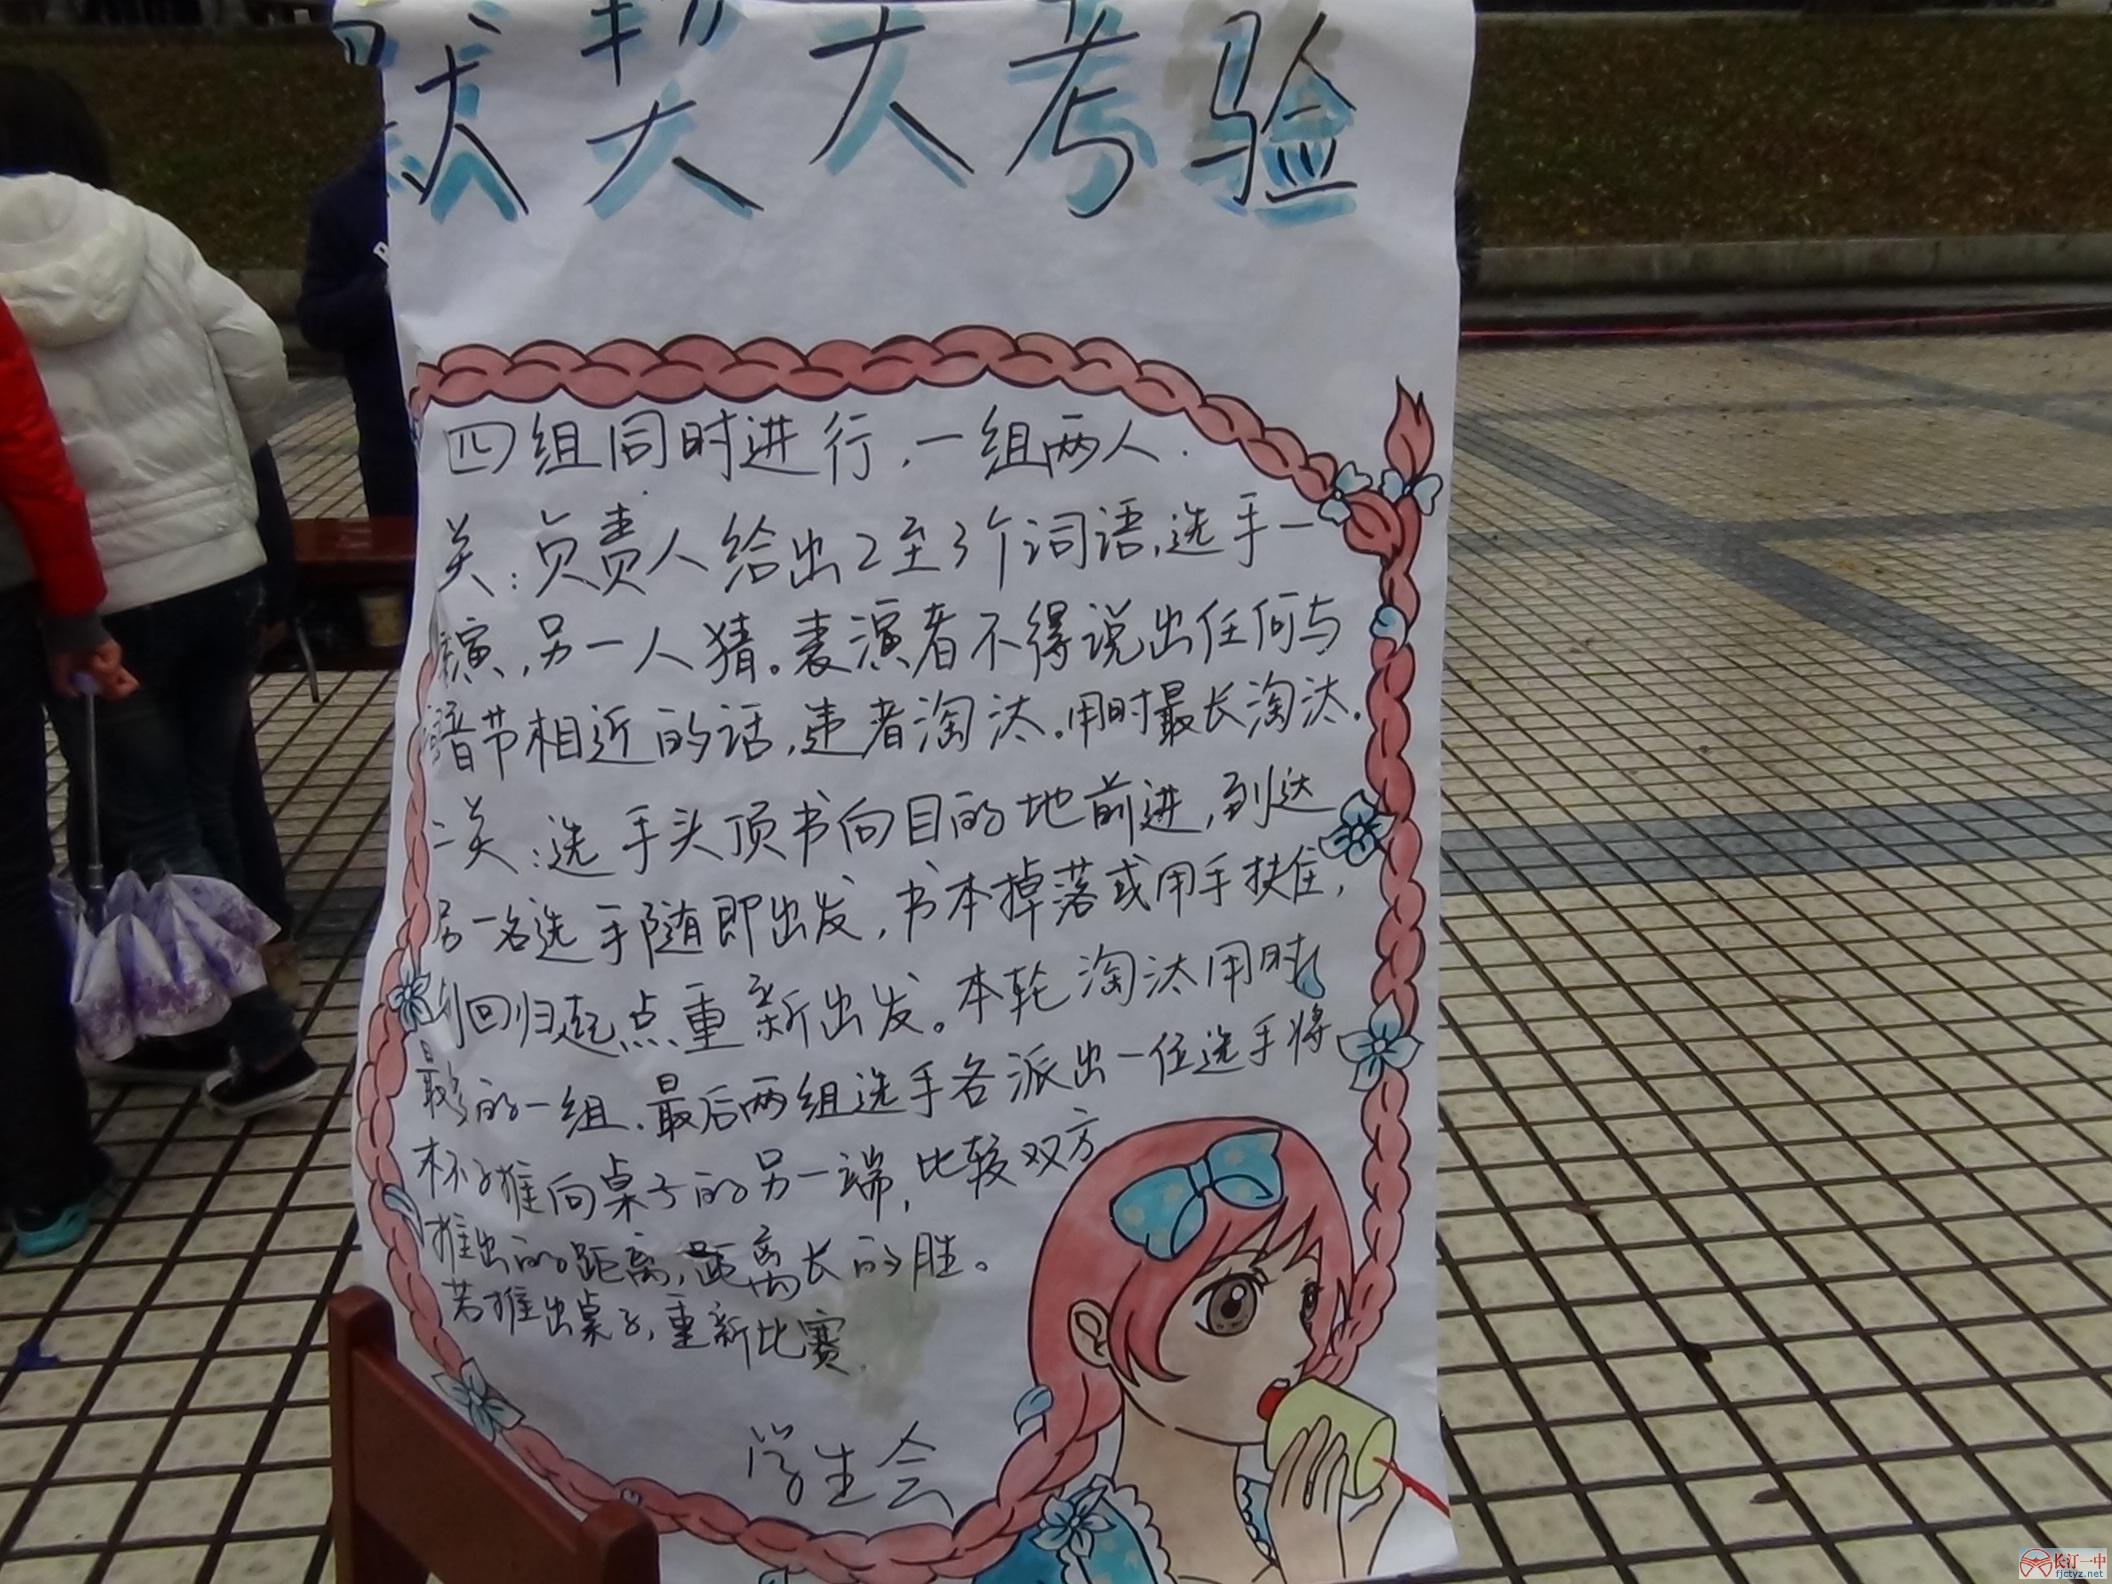 默契大考验
四组同时进行，一组两人.
关：负责人给出2至3个词语，选手一
演，另一人猜。表演者不得说出任何与
音节相近的话，违者淘汰。用时最长淘汰。
二关：选手头顶书向目的地前进，到达
另一名选手随即出发，书本掉落或用手扶住，
则回归起点重新出发。本轮淘汰用时
最多的一组。最后两组选手各派出一位选手将
杯子推向桌子的另一端，比较双方
推出的距离，距离长的胜。
若推出桌子，重新比赛.
学生会
长汀一中
fjctyz.net